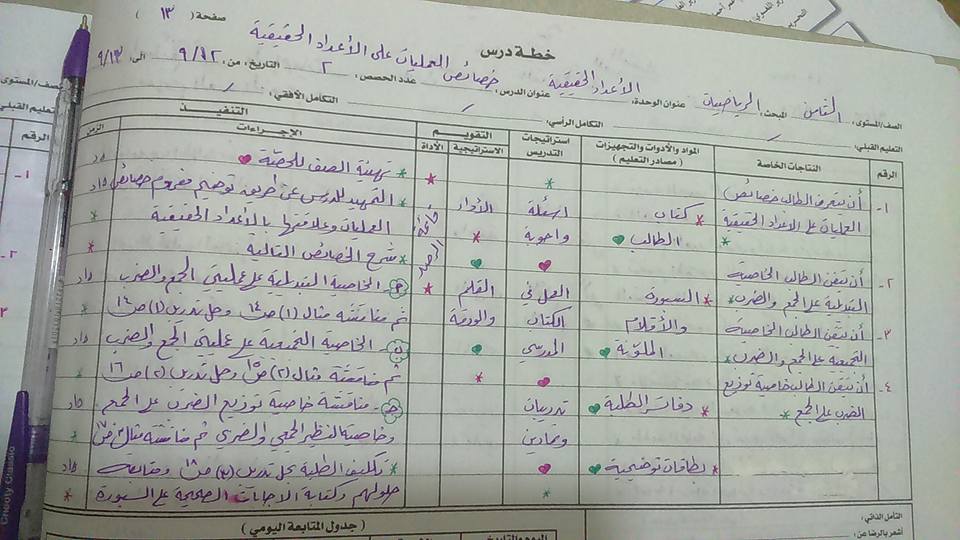 صفحة ( ١٣ )
خطة درس
الصف/المستوى: الثامن المبحث: الرياضيات عنوان الوحدة: الأعداد الحقيقية عنوان الدرس: خصائص العمليات على الأعداد الحقيقية عدد الحصص: ٢ التاريخ: من: ٩/١٢ الى: ٩/١٣
التعليم القبلي: التكامل الرأسي: التكامل الأفقي:
الرقم النتاجات الخاصة المواد والأدوات والتجهيزات (مصادر التعليم) استراتيجيات التدريس التقويم التنفيذ
الاستراتيجية الأداة الإجراءات الزمن
١- أن يتعرف الطالب خصائص
العمليات على الأعداد الحقيقية
٢- أن يتقن الطالب الخاصية
التبديلية على الجمع والضرب
٣- أن يتقن الطالب الخاصية
التجميعية على الجمع والضرب
٤- أن يتقن الطالب خاصية توزيع
الضرب على الجمع
كتاب
الطالب
السبورة
والأقلام
الملونة
دفاتر الطلبة
بطاقات توضيحية
اسئلة
واجوبة
العمل في
الكتاب
المدرسي
تدريبات
وتمارين
الأداء
القلم
والورقة
قائمة
رصد
تهيئة الصف للحصة
التمهيد للدرس عن طريق توضيح مفهوم خصائص
العمليات وعلاقتها بالأعداد الحقيقية
شرح الخصائص التالية
الخاصية التبديلية على عمليتي الجمع والضرب
ثم مناقشة مثال (١) ص١٤ وحل تدريب (١) ص
الخاصية التجميعية على عمليتي الجمع والضرب
ثم مناقشة مثال (٢) ص١٥ وحل تدريب (٢) ص١٦
مناقشة خاصية توزيع الضرب على الجمع
وخاصية النظير الجمعي والضربي ثم مناقشة مثال
تكليف الطلبة بحل تدريب (٣) ص١٨ ومتابعة
حلولهم وكتابة الاجابات الصحيحة على السبورة
التأمل الذاتي:
أشعر بالرضا عن:
( جدول المتابعة اليومي )
اليوم والتاريخ
الصف/المستوى
التعليم القبلي
الرقم
١-
٢-
٣